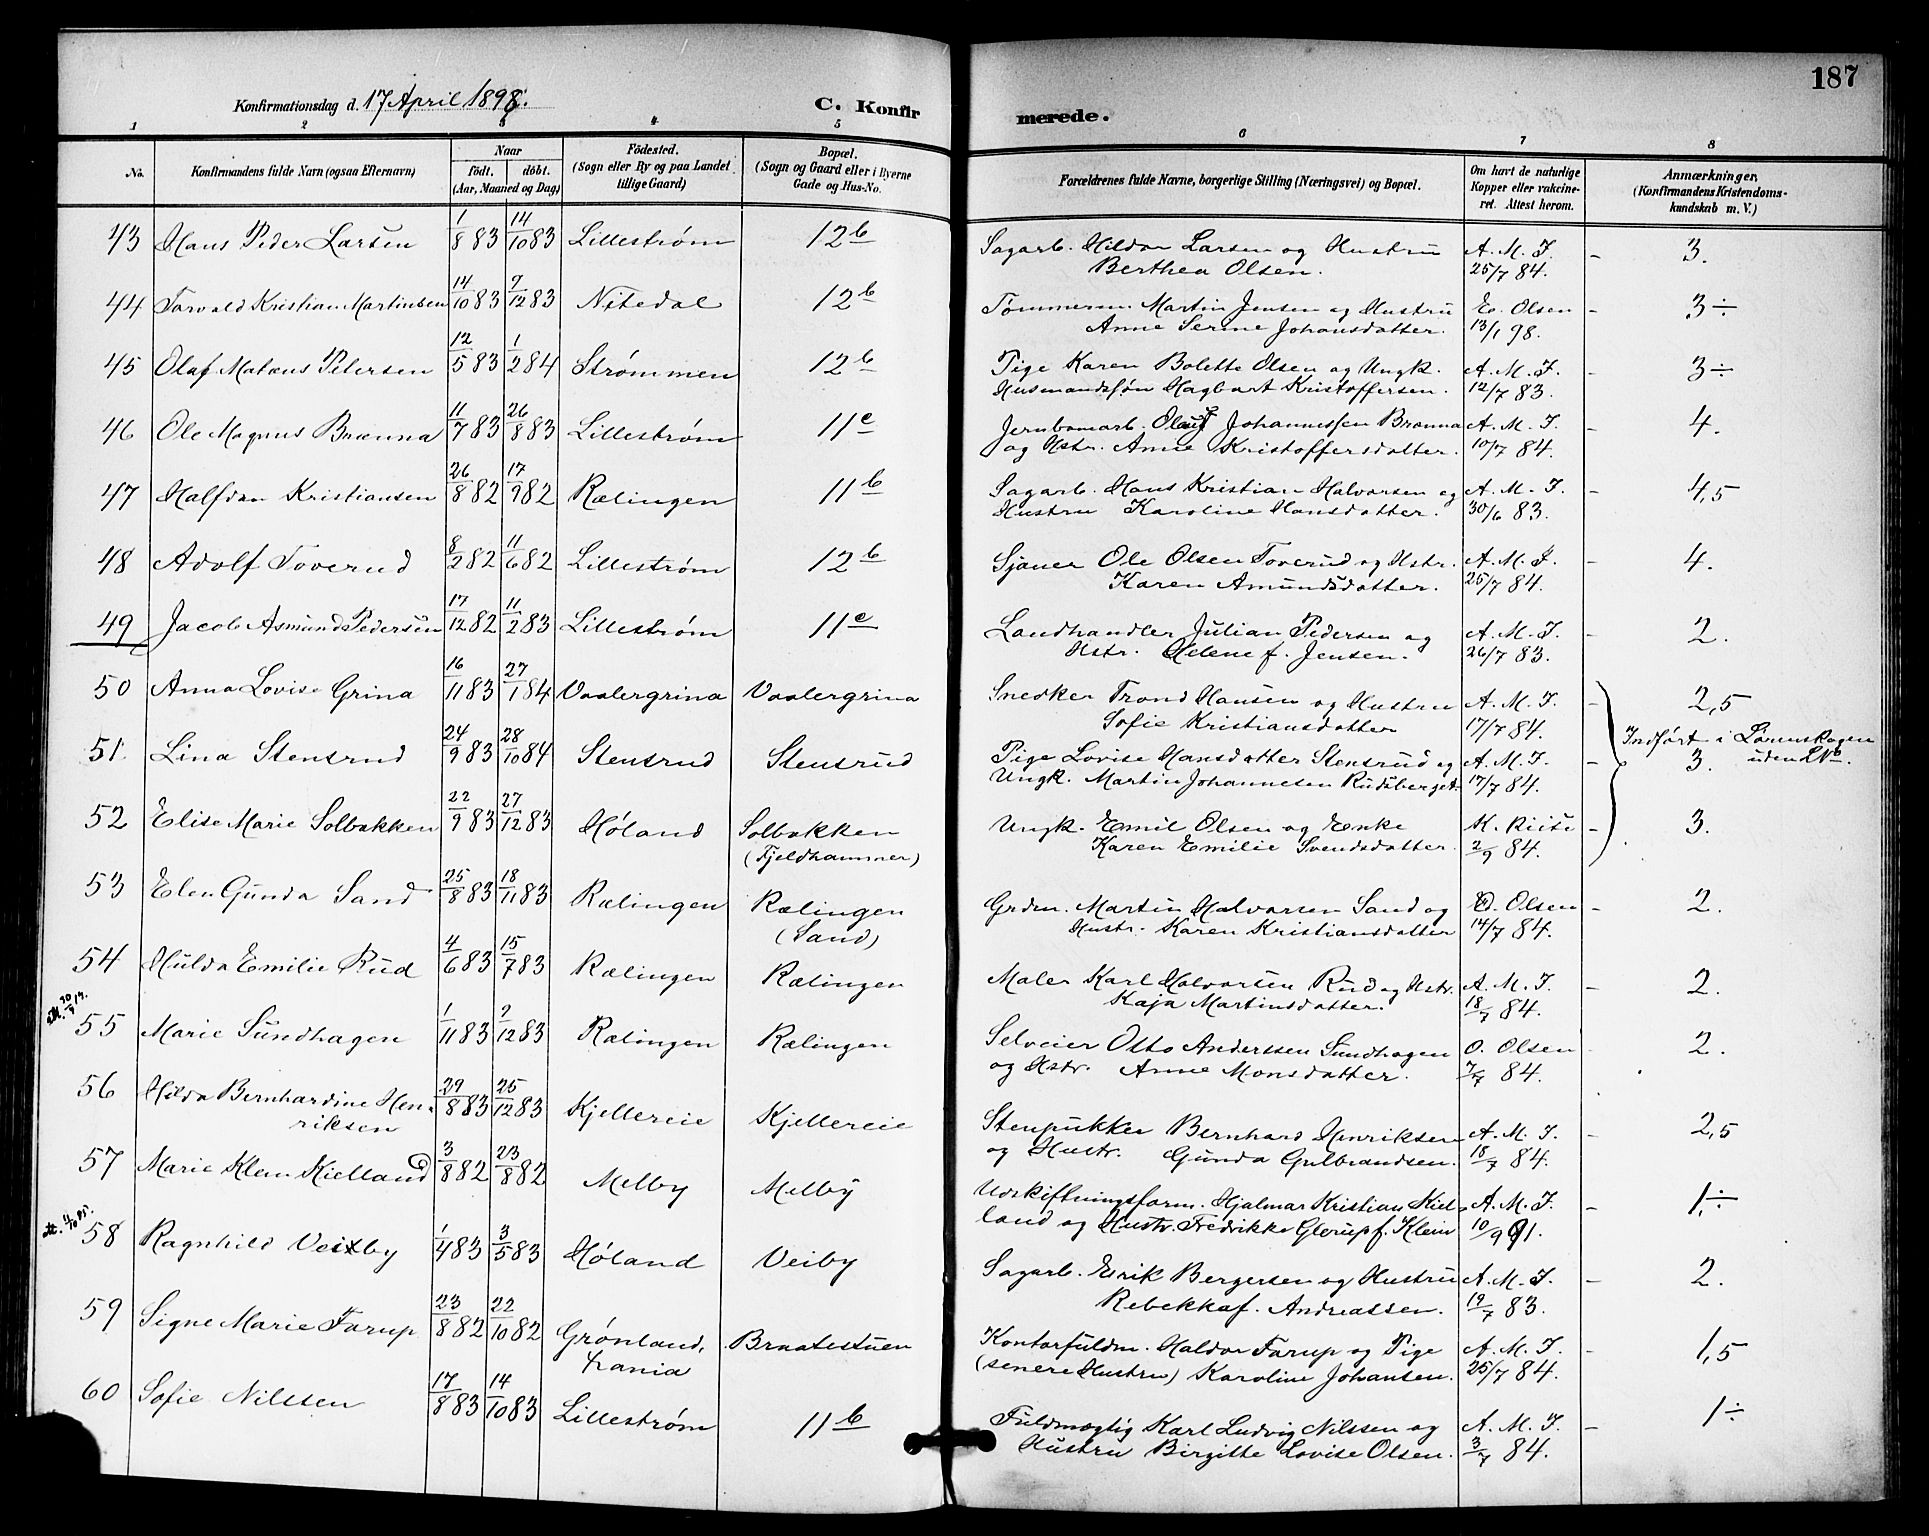 187
Konfirmationsdag d. 17 April 1898.
C. Konfirmerede.
1 2 3 4 5 6 7 8
No. Konfirmandens fulde Navn (ogsaa Efternavn) Naar født. døbt. (Aar, Maaned og Dag) Fødested. (Sogn eller By og paa Landet tillige Gaard) Bopæl. (Sogn og Gaard eller i Byerne Gade og Hus-No. Forældrenes fulde Navne, borgerlige Stilling (Næringsvei) og Bopæl. Om havt de naturlige Kopper eller vakcineret. Attest herom. Anmærkninger, (Konfirmandens Kristendomskundskab m. V.)
43 Hans Peder Larsen 1/8 83 14/10 83 Lillestrøm 12 b Sagarb. Hildor Larsen og Hustru A. M. I. - 3.
Berthea Olsen. 25/7 84.
44 Torvald Kristian Martinsen 14/10 83 9/12 83 Nitedal 12 b Tømmerm. Martin Jensen og Hustru E. Olsen - 3÷
Anne Serine Johansdatter. 13/1 98.
45 Olaf Mateus Petersen 12/5 83 1/2 84 Strømmen 12 b Pige Karen Bolette Olsen og Ungk. A. M. I. - 3÷
Husmandssøn Hagbart Kristoffersen. 12/7 83.
46 Ole Magnus Brænna 11/7 83 26/8 83 Lillestrøm 11 c Jernbanearb. Oluf Johannessen Brænna A. M. I. - 4.
og Hstr. Anne Kristoffersdatter. 10/7 84.
47 Halfdan Kristiansen 26/8 82 17/9 82 Rælingen 11 b Sagarb. Hans Kristian Halvorsen og A. M. I. - 4,5
Hustru Karoline Hansdatter. 30/6 83.
48 Adolf Toverud 8/2 82 11/6 82 Lillestrøm 12 b Sjauer Ole Olsen Toverud og Hstr. A. M. I. - 4.
Karen Amundsdatter. 25/7 84.
49 Jacob Asmund Pedersen 17/12 82 11/2 83 Lillestrøm 11 c Landhandler Julian Pedersen og A. M. I. - 2.
Hstr. Helene f. Jensen. 26/7 83.
50 Anna Lovise Grina 16/11 83 27/1 84 Vaalergrina Vaalergrina Snedker Trond Hansen og Hustru A. M. I. - 2,5
Sofie Kristiansdatter 17/7 84.
Indført i Lørenskogen
uden No.
51. Lina Stensrud 24/9 83 28/10 84 Stensrud Stensrud Pige Lovise Hansdatter Stensrud og A. M. I. - 3.
Ungk. Martin Johannesen Rudsberget. 17/7 84.
52 Elise Marie Solbakken 22/9 83 27/12 83 Høland Solbakken Ungk. Emil Olsen og Enke K. Riise - 3.
(Fjeldhammer) Karen Emilie Svendsdatter. 2/9 84.
53 Elen Gunda Sand 25/8 83 18/11 83 Rælingen Rælingen Grdm. Martin Halvorsen Sand og E. Olsen - 2.
(Sand) Hustr. Karen Kristiansdatter 14/7 84.
54 Hulda Emilie Rud 4/6 83 15/7 83 Rælingen Rælingen Maler Karl Halvorsen Rud og Hstr. A. M. I. - 2.
Kaja Martinsdatter. 18/7 84.
55 Marie Sundhagen 1/11 83 2/12 83 Rælingen Rælingen Selveier Otto Anderssen Sundhagen O. Olsen 2.
og Hstr. Anne Monsdatter. 7/7 84.
56 Hilda Bernhardine Hen- 29/8 83 25/12 83 Kjellereie Kjellereie Stenpukker Bernhard Henriksen A. M. I. - 2,5
riksen og Hustr. Gunda Gulbrandsen. 18/7 84.
57 Marie Klem Kielland 3/8 82 23/8 82 Melby Melby Udskiftningsform. Hjalmar Kristian Kiel- A. M. I. - 1÷
land og Hustr. Fredrikke Glerup f. Klem 10/9 91.
58 Ragnhild Veiby 1/4 83 3/5 83 Høland Veiby Sagarb. Erik Bergersen og Hustru A. M. I. - 2.
Rebekka f. Andreassen. 19/7 83.
59 Signe Marie Farup 23/8 82 22/10 82 Grønland, Braatestuen Kontorfuldm. Haldor Farup og Pige A. M. I. - 1,5
(senere Hustru) Karoline Johansen. 25/7 84.
60 Sofie Nilssen 17/8 83 14/10 83 Lillestrøm 11 b Fuldmægtig Karl Ludvig Nilssen og A. M. I. - 1÷
Hustru Birgitte Lovise Olsen. 3/7 84.